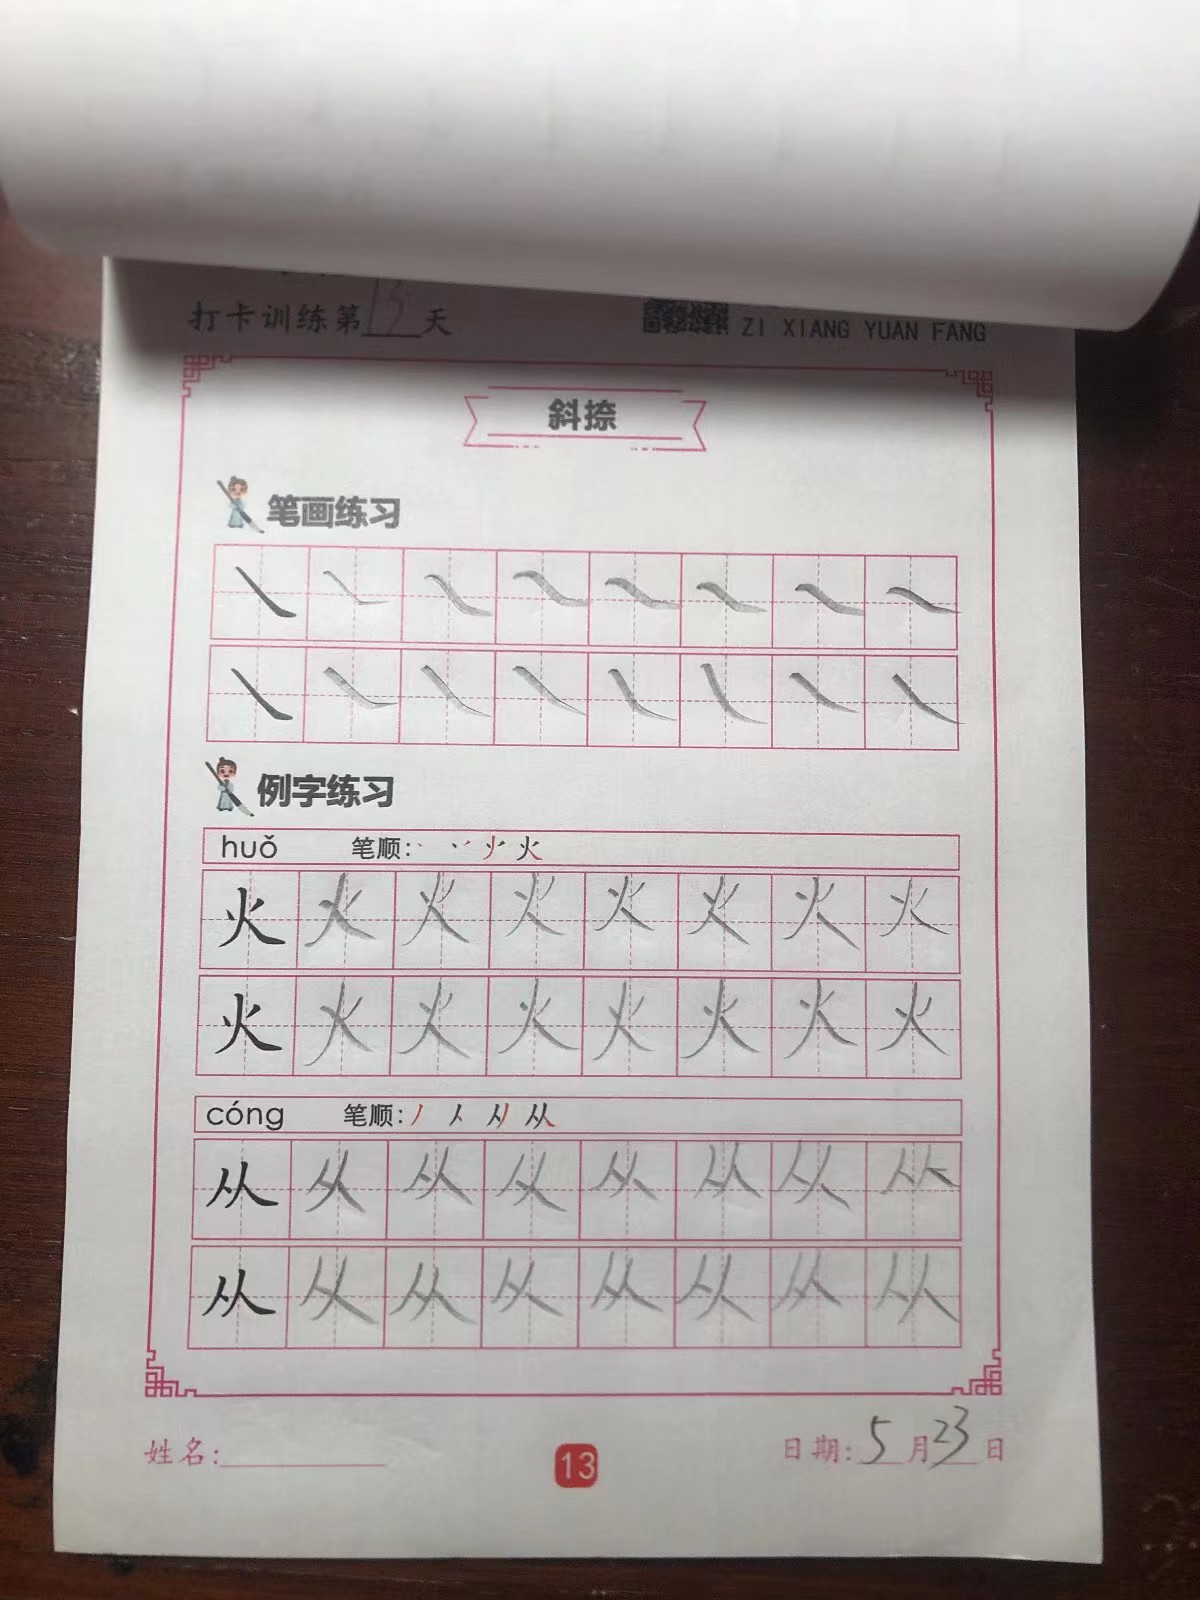 打卡训练第13天
ZI XIANG YUAN FANG
斜捺
笔画练习
例字练习
huǒ 笔顺: 火
火 火 火 火 火 火 火 火
火 火 火 火 火 火 火 火
cóng 笔顺: 丿 人 从
从 从 从 从 从 从 从 从
从 从 从 从 从 从 从 从
姓名:
13
日期: 5月23日